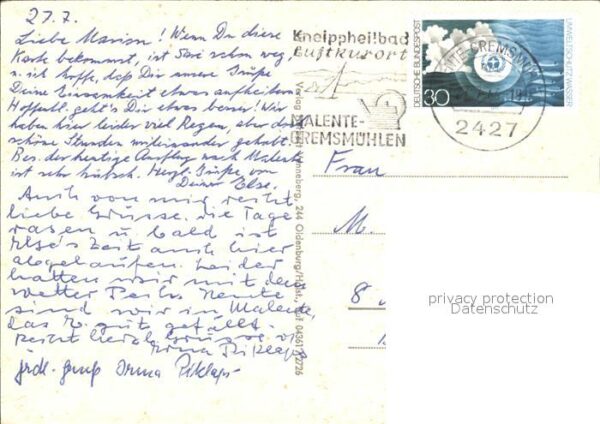 27.7.
Liebe Marion! Wenn Du diese
Karte bekommst, ist schon weg,
u. ich hoffe, daß Dir unsere Grüße
Deine Einsamkeit etwas aufheitern.
Hoffentl. geht's Dir etwas besser! Wir
haben hier leider viel Regen, aber doch
schöne Stunden miteinander gehabt.
Bes. der heutige Ausflug nach Malente
ist sehr hübsch. Herzl. Grüße von
Deiner Else.
Auch von mir recht
liebe Grüsse. die Tage
rasen u. bald ist
Else's Zeit auch hier
abgelaufen. Leider
hatten wir mit dem
Wetter Pech. Heute
sind wir in Malente,
das gut gefällt.
recht herzl. Grüsse v.
Irma Piklaps
Irma Piklaps
Kneippheilbad
Luftkurort
MALENTE-
GREMSMÜHLEN
DEUTSCHE BUNDESPOST
30
UMWELTSCHUTZ WASSER
GREMSM
2427
Verlag 244 Oldenburg/Holst., Ruf 04361/2726
Frau
M.
8
privacy protection
Datenschutz